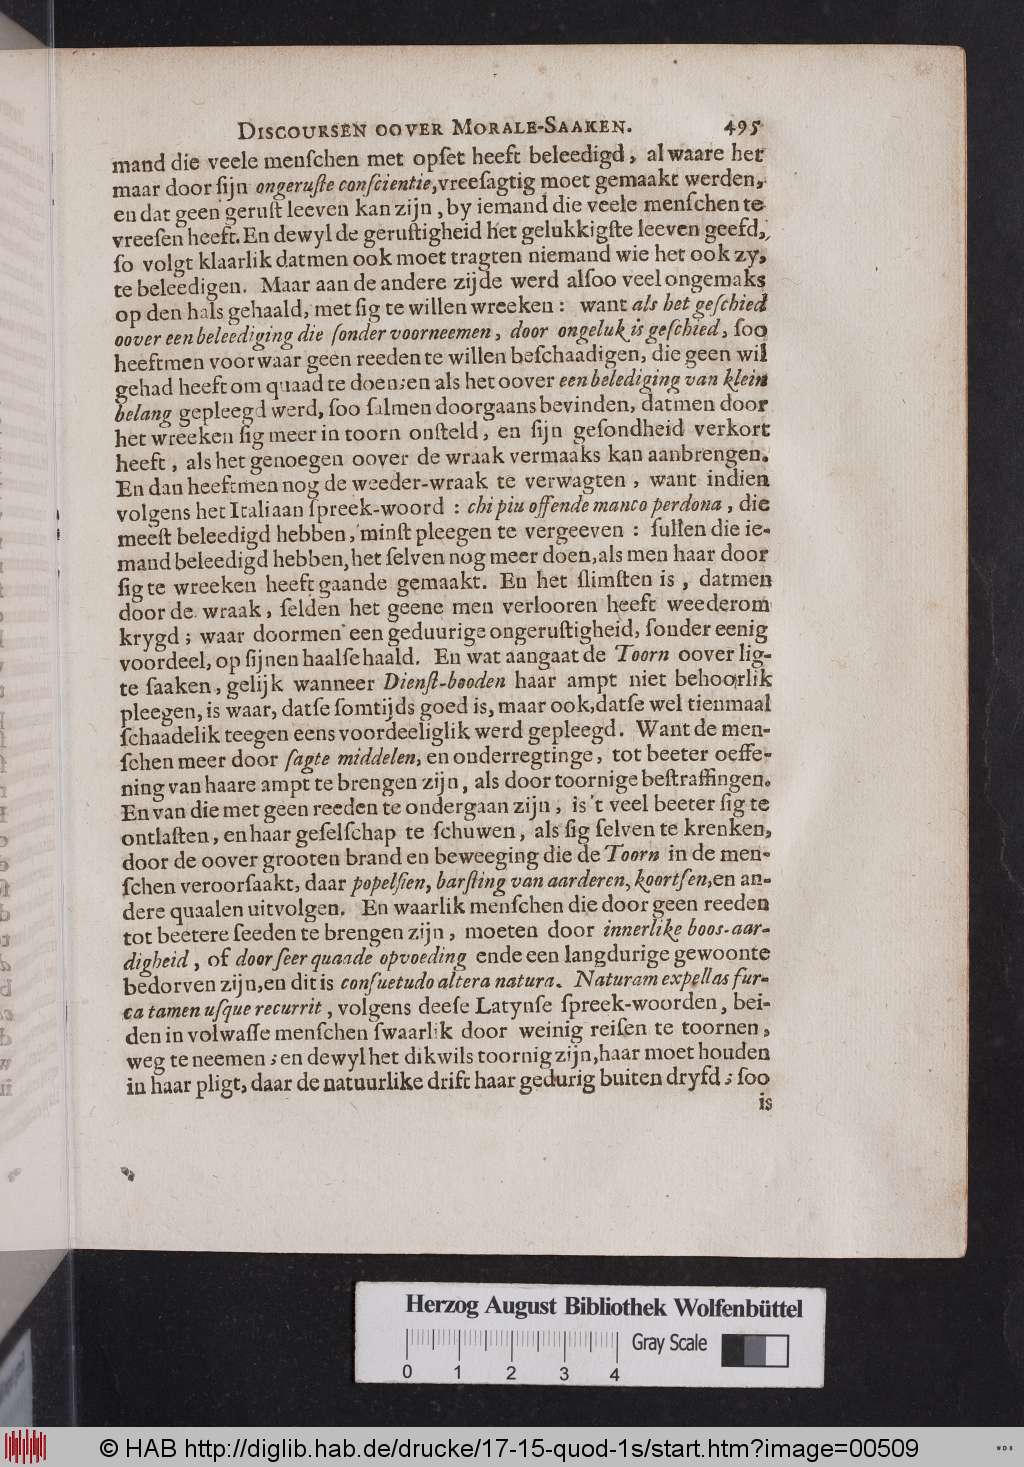 DISCOURSEN OOVER MORALE-SAAKEN. 495
mand die veele menſchen met opſet heeft beleedigd, al waare het
maar door ſijn ongeruſte conſcientie, vreeſagtig moet gemaakt werden,
en dat geen geruſt leeven kan zijn, by iemand die veele menſchen te
vreeſen heeft. En dewyl de geruſtigheid het gelukkigſte leeven geefd,
ſo volgt klaarlik datmen ook moet tragten niemand wie het ook zy,
te beleedigen. Maar aan de andere zijde werd alſoo veel ongemaks
op den hals gehaald, met ſig te willen wreeken: want als het geſchied
oover een beleediging die ſonder voorneemen, door ongeluk is geſchied, ſoo
heeftmen voorwaar geen reeden te willen beſchaadigen, die geen wil
gehad heeft om quaad te doen; en als het oover een belediging van klein
belang gepleegd werd, ſoo ſalmen doorgaans bevinden, datmen door
het wreeken ſig meer in toorn onſteld, en ſijn geſondheid verkort
heeft, als het genoegen oover de wraak vermaaks kan aanbrengen.
En dan heeftmen nog de weeder-wraak te verwagten, want indien
volgens het Italiaan ſpreek-woord: chi piu offende manco perdona, die
meeſt beleedigd hebben, minſt pleegen te vergeeven: ſullen die ie-
mand beleedigd hebben, het ſelven nog meer doen, als men haar door
ſig te wreeken heeft gaande gemaakt. En het ſlimſten is, datmen
door de wraak, ſelden het geene men verlooren heeft weederom
krygd; waar doormen een geduurige ongeruſtigheid, ſonder eenig
voordeel, op ſijnen haalſe haald. En wat aangaat de Toorn oover lig-
te ſaaken, gelijk wanneer Dienſt-booden haar ampt niet behoorlik
pleegen, is waar, datſe ſomtijds goed is, maar ook, datſe wel tienmaal
ſchaadelik teegen eens voordeeliglik werd gepleegd. Want de men-
ſchen meer door ſagte middelen, en onderregtinge, tot beeter oeffe-
ning van haare ampt te brengen zijn, als door toornige beſtraffingen.
En van die met geen reeden te ondergaan zijn, is 't veel beeter ſig te
ontlaſten, en haar geſelſchap te ſchuwen, als ſig ſelven te krenken,
door de oover grooten brand en beweeging die de Toorn in de men-
ſchen veroorſaakt, daar popelſien, barſting van aarderen, koortſen, en an-
dere quaalen uitvolgen. En waarlik menſchen die door geen reeden
tot beetere ſeeden te brengen zijn, moeten door innerlike boos-aar-
digheid, of door ſeer quaade opvoeding ende een langdurige gewoonte
bedorven zijn, en dit is conſuetudo altera natura. Naturam expellas fur-
ca tamen uſque recurrit, volgens deeſe Latynſe ſpreek-woorden, bei-
den in volwaſſe menſchen ſwaarlik door weinig reiſen te toornen,
weg te neemen; en dewyl het dikwils toornig zijn, haar moet houden
in haar pligt, daar de natuurlike drift haar gedurig buiten dryfd; ſoo
is
Herzog August Bibliothek Wolfenbüttel
Gray Scale
0 1 2 3 4
© HAB http://diglib.hab.de/drucke/17-15-quod-1s/start.htm?image=00509